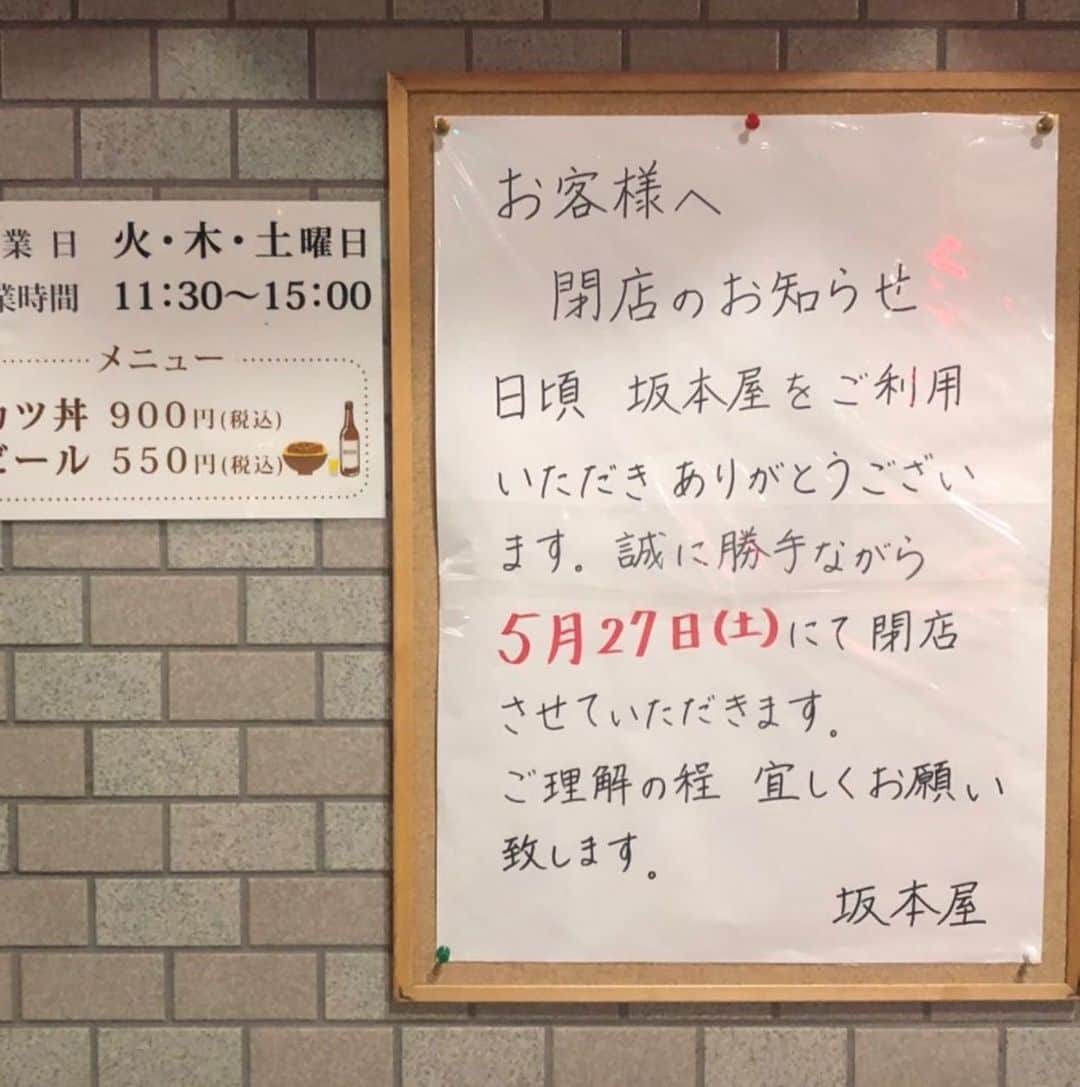 業日 火・木・土曜日
業時間 11:30～15:00
メニュー
カツ丼 900円(税込)
ビール 550円(税込)
お客様へ
閉店のお知らせ
日頃 坂本屋をご利用
いただき ありがとうござい
ます。誠に勝手ながら
5月27日(土)にて閉店
させていただきます。
ご理解の程 宜しくお願い
致します。
坂本屋